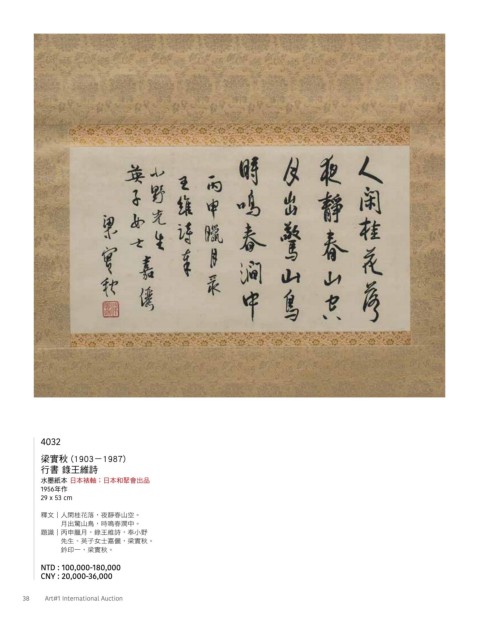 人閑桂花落
夜靜春山空
月出驚山鳥
時鳴春澗中
丙申臘月录
王維詩奉
小野先生
英子女士 嘉儷
梁實秋
4032
梁實秋 (1903－1987)
行書 錄王維詩
水墨紙本 日本裱軸；日本和聚會出品
1956年作
29 x 53 cm
釋文｜人閑桂花落，夜靜春山空。
月出驚山鳥，時鳴春澗中。
題識｜丙申臘月，錄王維詩，奉小野
先生、英子女士嘉儷，梁實秋。
鈐印一，梁實秋。
NTD : 100,000-180,000
CNY : 20,000-36,000
38 Art#1 International Auction